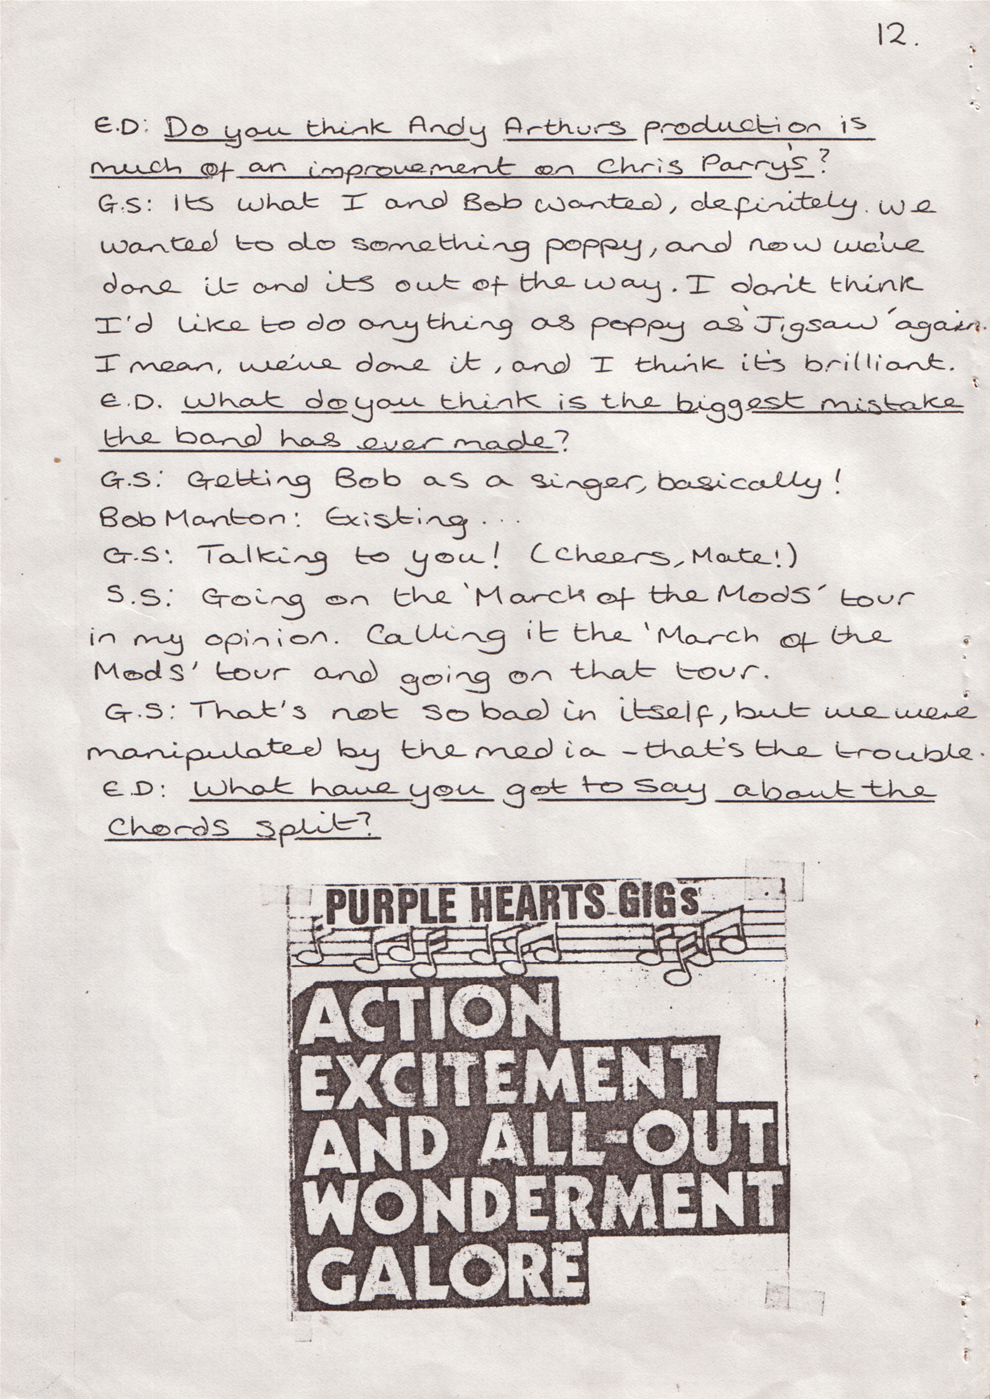 12.
E.D: Do you think Andy Arthurs production is
much of an improvement on Chris Parry's?
G.S: Its what I and Bob wanted, definitely. we
wanted to do something poppy, and now we've
done it and its out of the way. I don't think
I'd like to do anything as poppy as 'Jigsaw' again.
I mean, we've done it, and I think it's brilliant.
E.D. What do you think is the biggest mistake
the band has ever made?
G.S: Getting Bob as a singer, basically!
Bob Manton: Existing...
G.S: Talking to you! (Cheers, Mate!)
S.S: Going on the 'March of the Mods' tour
in my opinion. Calling it the 'March of the
Mods' tour and going on that tour.
G.S: That's not so bad in itself, but we were
manipulated by the media - that's the trouble.
E.D: What have you got to say about the
Chords split?
PURPLE HEARTS GIGs
ACTION
EXCITEMENT
AND ALL-OUT
WONDERMENT
GALORE